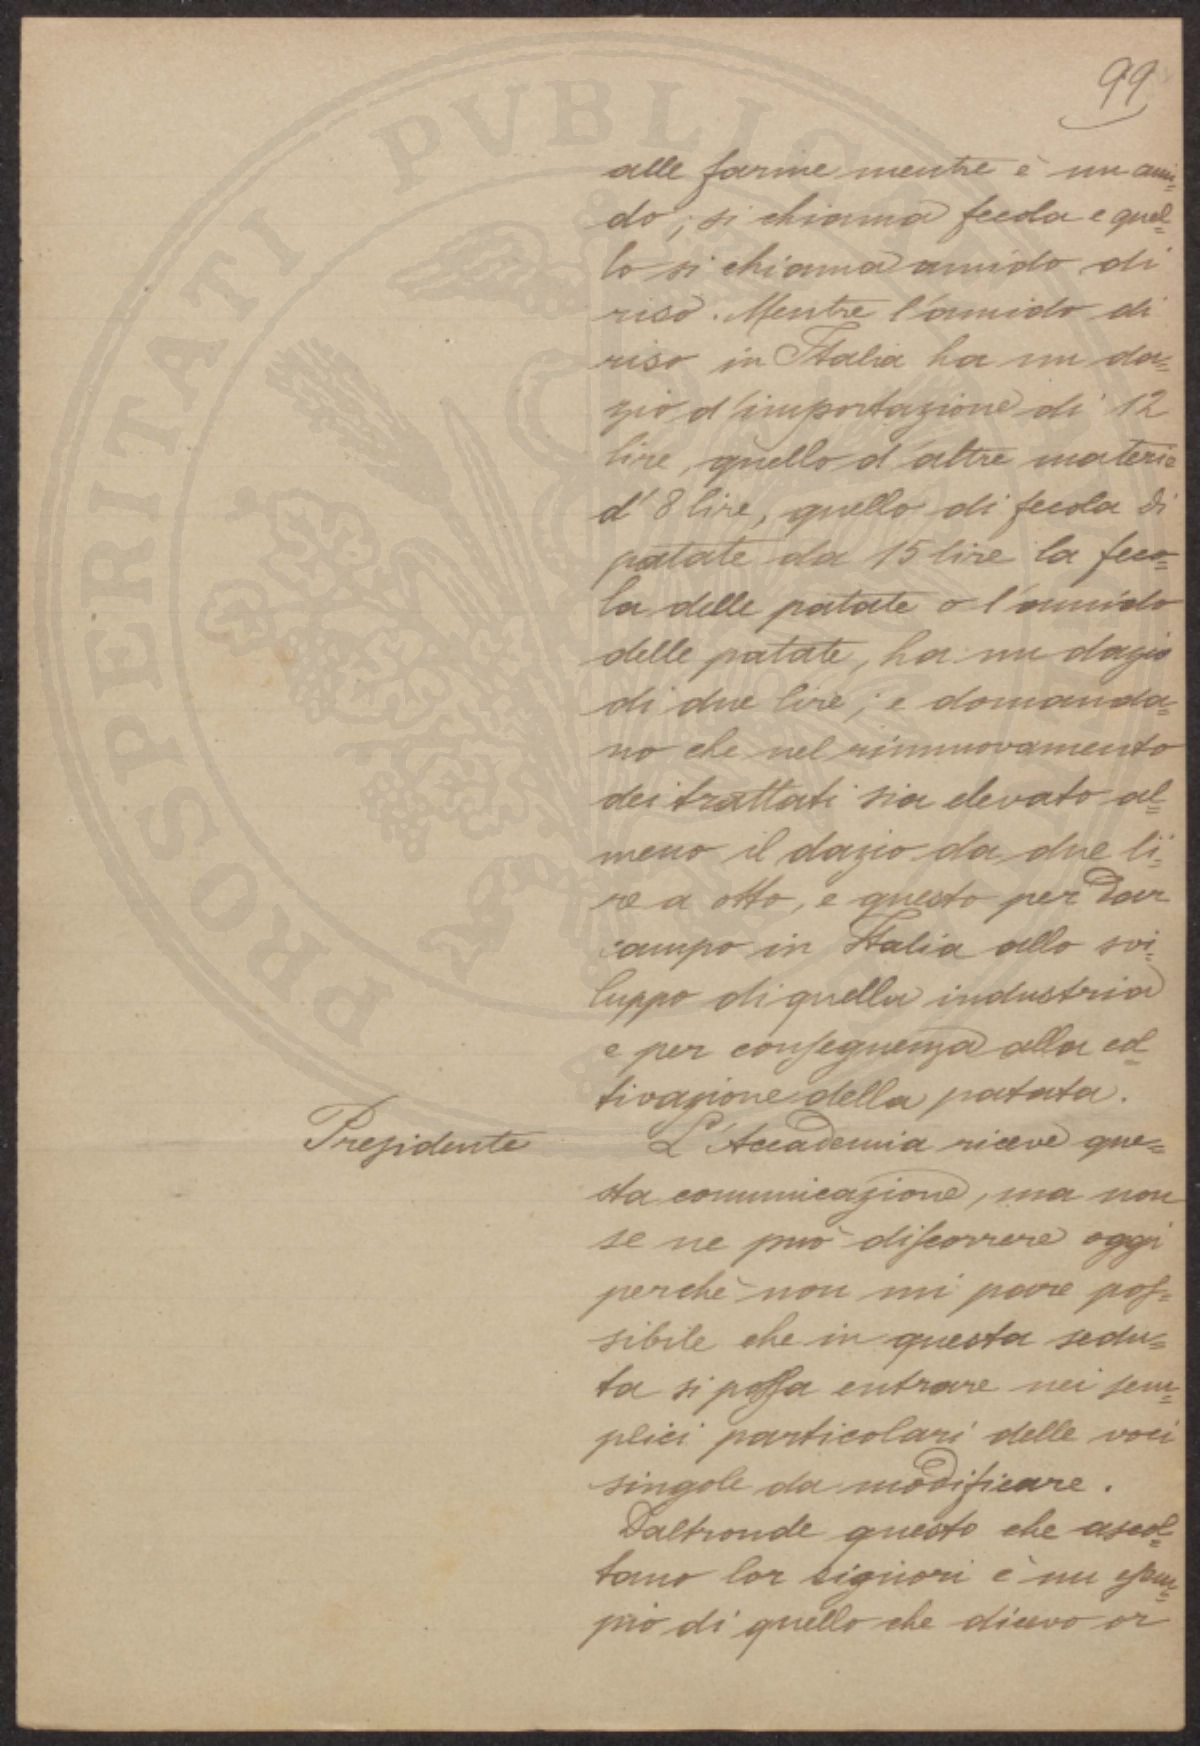 99
alle farine mentre è un ami=
do, si chiama fecola e quel=
lo si chiama amido di
riso. Mentre l'amido di
riso in Italia ha un da=
zio d'importazione di 12
lire, quello d'altre materie
d'8 lire, quello di fecola di
patate da 15 lire la feco=
la delle patate o l'amido
delle patate, ha un dazio
di due lire; e domanda=
no che nel rinnuovamento
dei trattati sia elevato al=
meno il dazio da due li=
re a otto, e questo per dar
campo in Italia allo svi=
luppo di quella industria
e per conseguenza alla col=
tivazione della patata.
Presidente L'Accademia riceve que=
sta comunicazione, ma non
se ne può discorrere oggi
perchè non mi pare pos=
sibile che in questa sedu=
ta si possa entrare nei sem=
plici particolari delle voci
singole da modificare.
Daltronde questo che ascol=
tano lor signori è un esem=
pio di quello che dicevo or
PROSPERITATI PUBLICAE